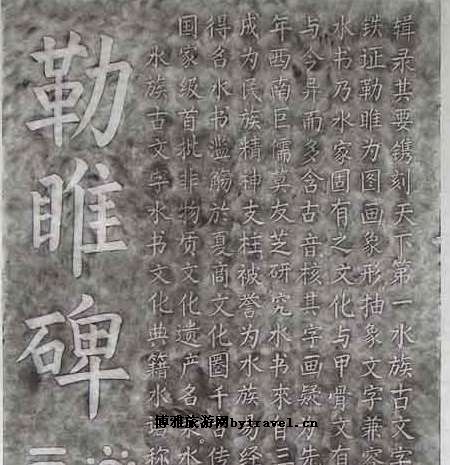 勒睢碑
水族古文字水书文化典籍水语称
国家级首批非物质文化遗产名录水
得名水书滥觞於夏商文化圈千古传
成为民族精神支柱被誉为水族易经
年西南巨儒莫友芝研究水书来自三
与今异而多含古音核其字画疑为先
水书乃水家固有之文化与甲骨文有
铁证勒睢为图画象形抽象文字兼容
辑录其要镌刻天下第一水族古文字
博雅旅游网bytravel.cn